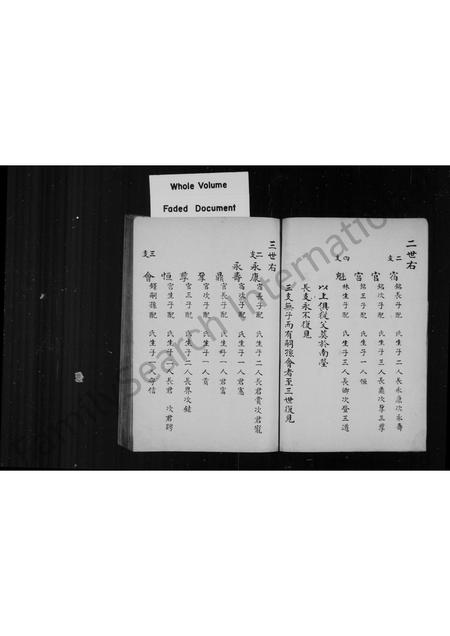 Whole Volume
Faded Document
二世右
二支 富 銘長子配 氏生子二人長永康次永壽
官 銘次子配 氏生子三人長鼎次鼐三尊
宮 銘三子配 氏生子一人恒
四支 魁 林生子配 氏生子三人長卿次登三道
以上俱從父葬於南塋
長支永不復見
三支無子而有嗣孫會者至三世復見
三世右
二支 永康 富長子配 氏生子二人長君貴次君寵
永壽 富次子配 氏生子一人君憲
鼎 官長子配 氏生子一人君富
鼐 官次子配 氏生子一人貢
尊 官三子配 氏生子二人長界次
恒 宮生子配 氏生子二人長君 次君聘
三支 會 鐘嗣孫配 氏生子一人守信
Search International